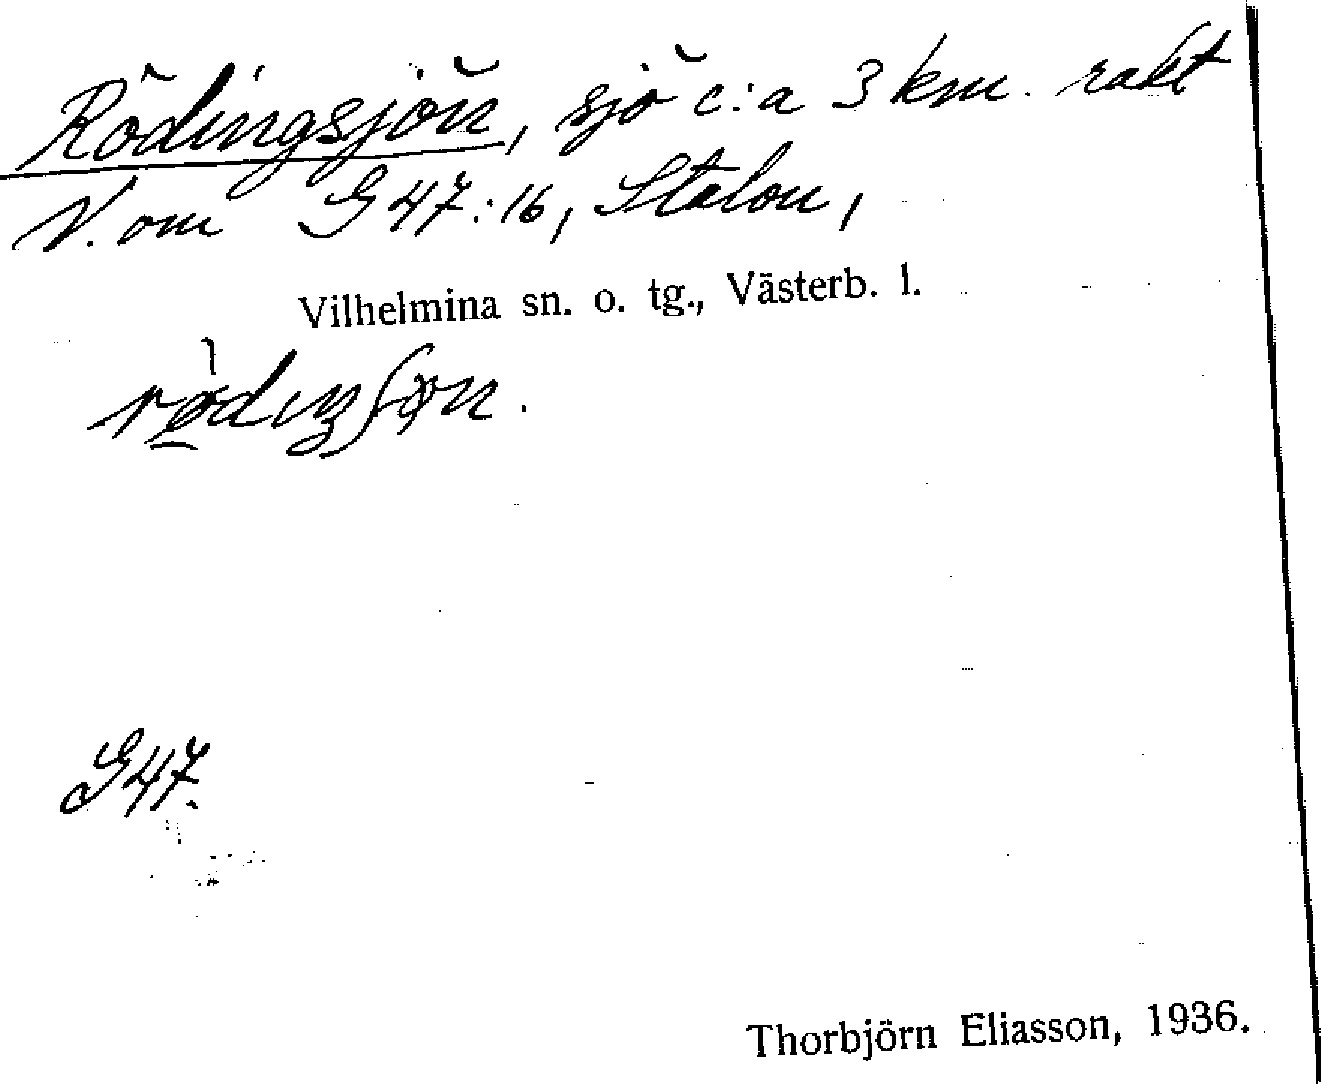 Rödingsjön, sjö c:a 3 km. rakt
V. om G 47:16, Stalon,
Vilhelmina sn. o. tg., Västerb. l.
G 47.
Thorbjörn Eliasson, 1936.